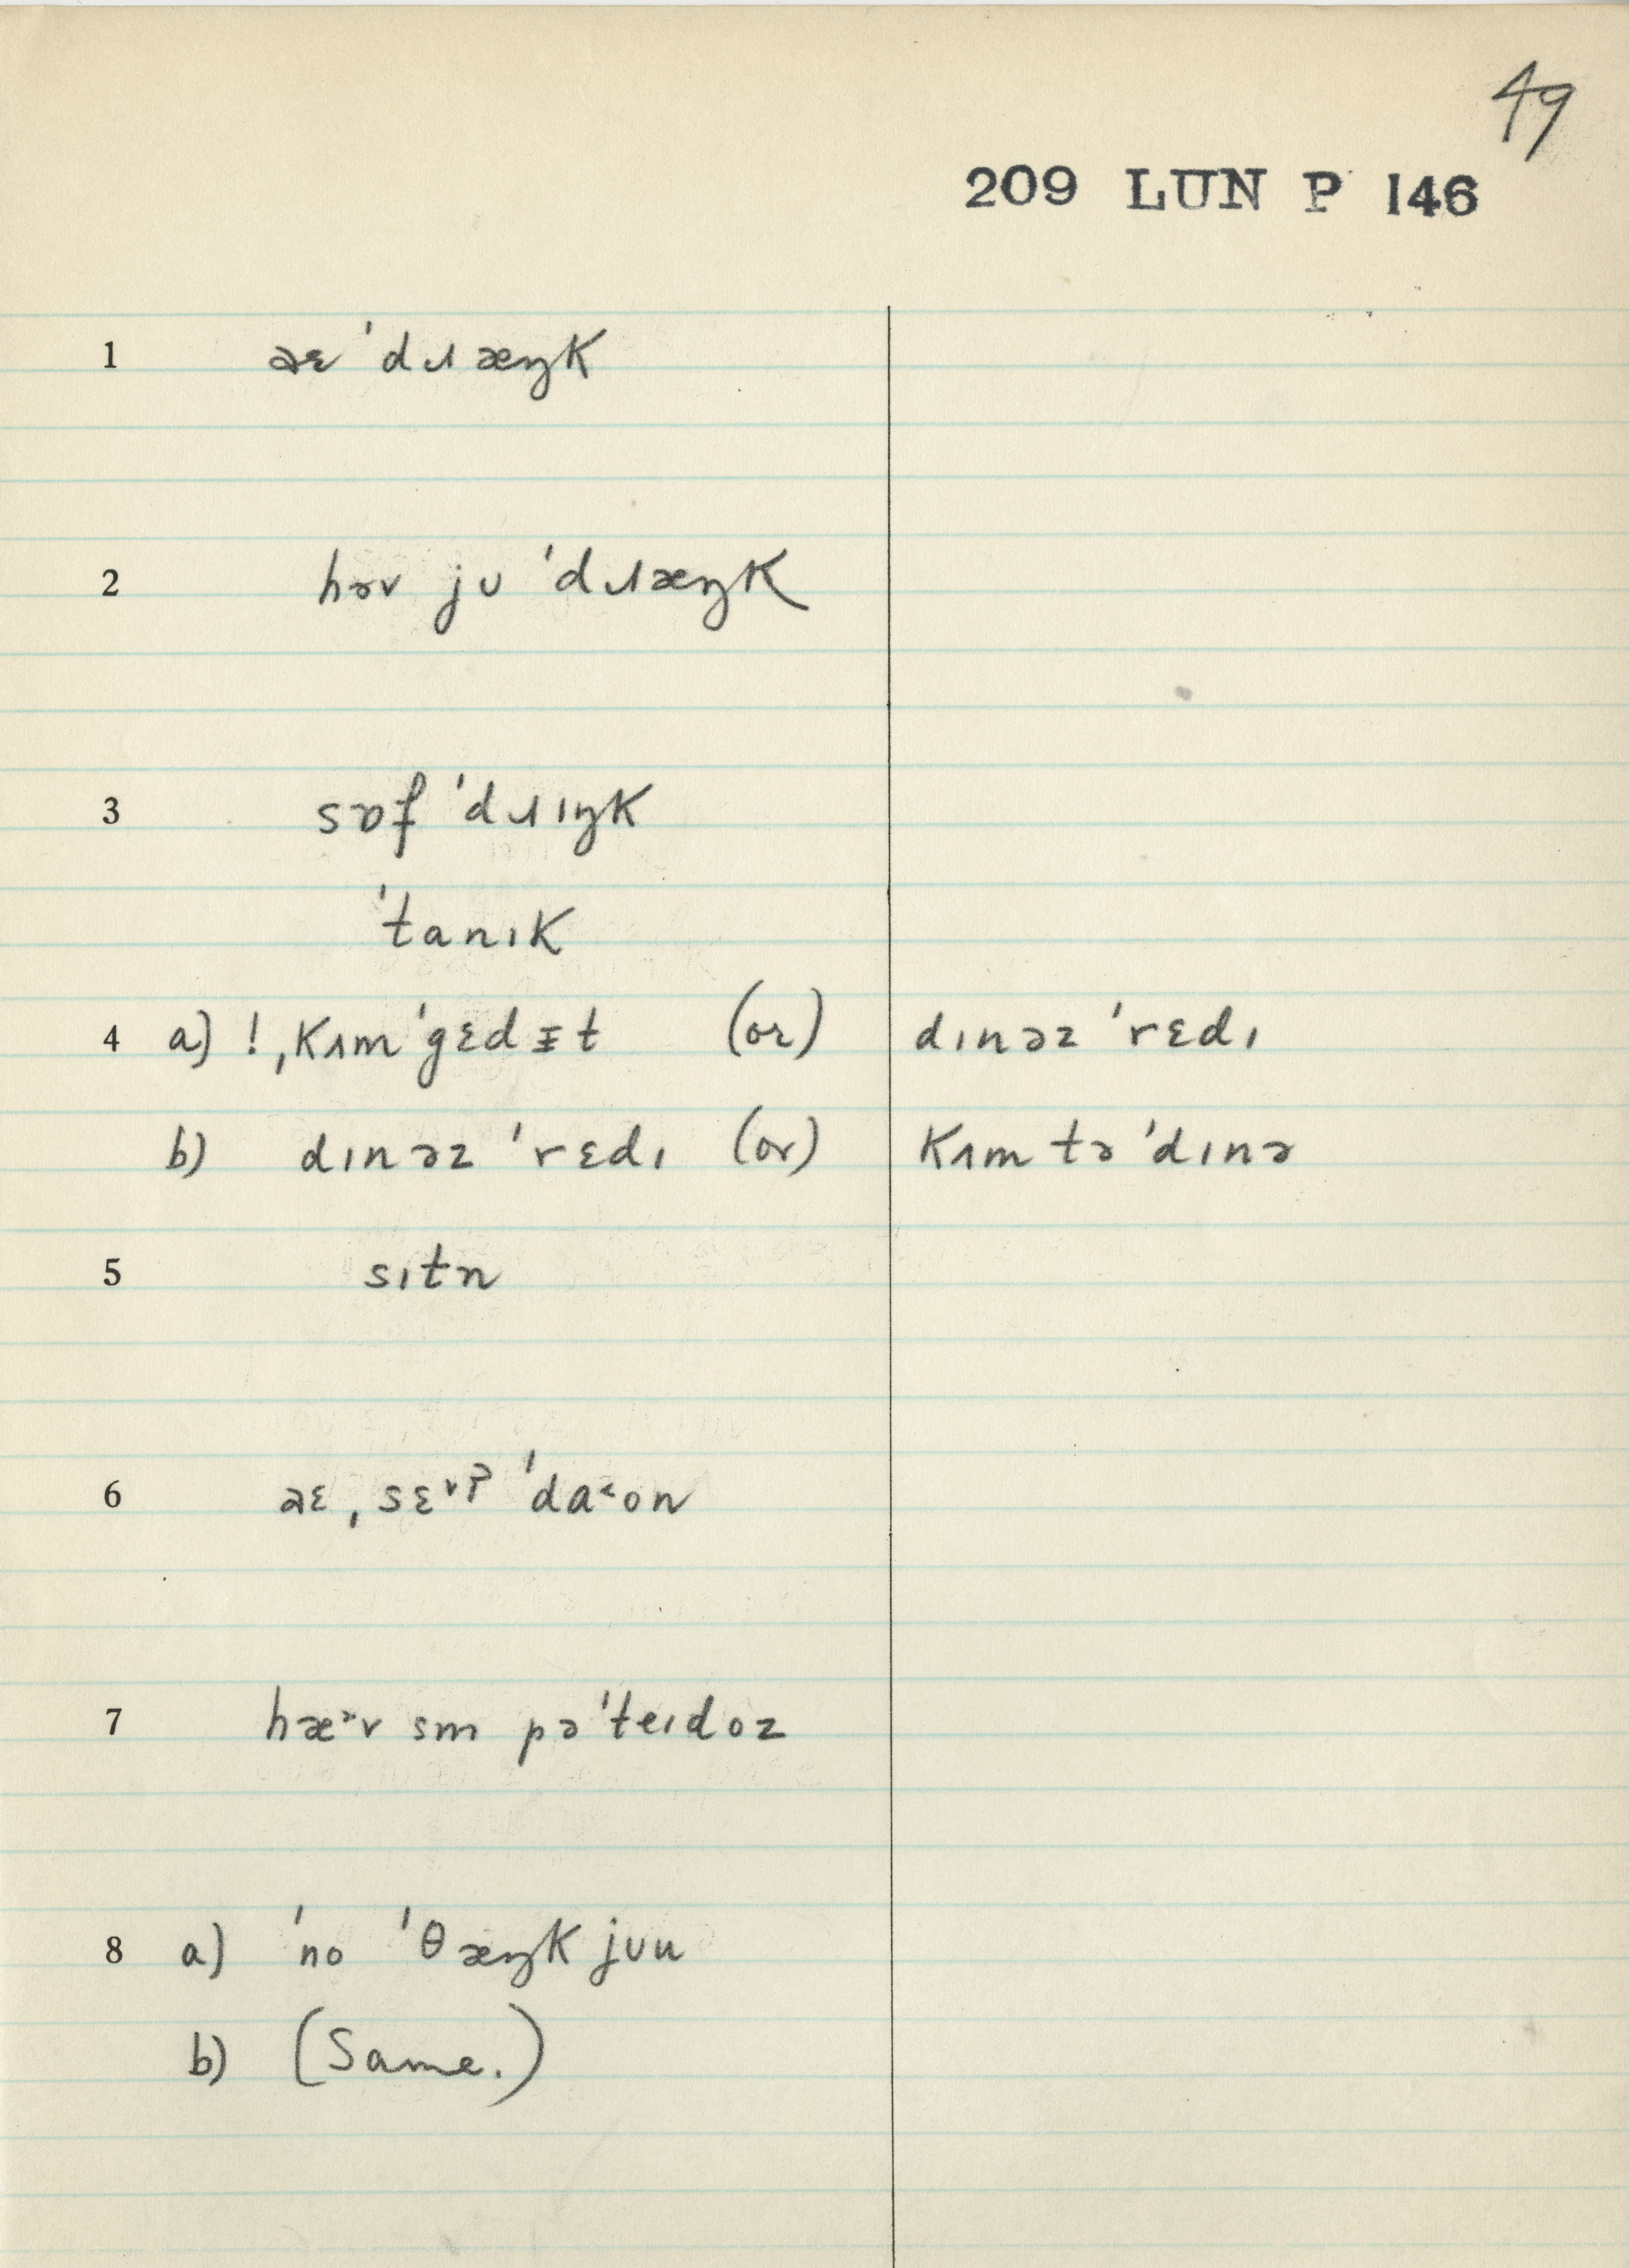 49
209 LUN P 146
1 aɛ 'dɹæŋk
2 həv ju 'dɹæŋk
3 sɒf 'dɹɪŋk
'tanɪk
4 a) ! ˌkʌm 'gɛdɪt (or) dɪnəz 'rɛdɪ
b) dɪnəz 'rɛdɪ (or) kʌm tə 'dɪnə
5 sɪtn
6 aɛ ˌsɛvʔ 'da˂on
7 hæᵊv sm pə'teɪdoz
8 a) 'no 'θæŋk juu
b) (Same.)